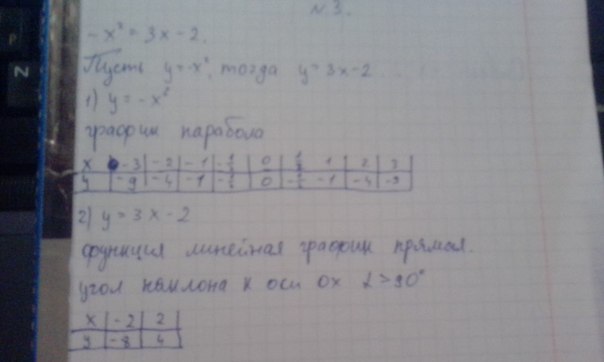 N 3.
- x² = 3x - 2.
Пусть y = -x², тогда y = 3x - 2
1) y = -x²
график парабола
x | -3 | -2 | -1 | -½ | 0 | ½ | 1 | 2 | 3
y | -9 | -4 | -1 | | 0 | | -1 | -4 | -9
2) y = 3x - 2
функция линейная график прямая.
угол наклона к оси ox α > 90°
x | -2 | 2
y | -8 | 4
P
N